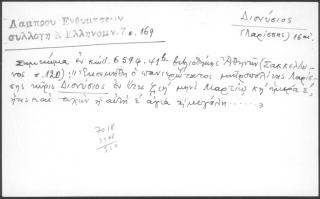 Λάμπρου Ἐνθυμήσεων
συλλογή Ν. Ἑλληνομν. 7 σ. 169
Διονύσιος
(Λαρίσσης) 16 αἰ.
Σημείωμα ἐν κώδ. 659 φ. 41β βιβλιοθήκης Ἀθηνῶν (Σακκελίω-
νος σ. 120): "Ἐκοιμήθη ὁ πανιερώτατος μητροπολίτης Λαρίσ-
σης κύρις Διονύσιος ἐν ἔτει μηνὶ Μαρτίῳ κη ἡμέρᾳ
καὶ αὐτὴ ἡ ἁγία μεγάλη ......
7018
5508